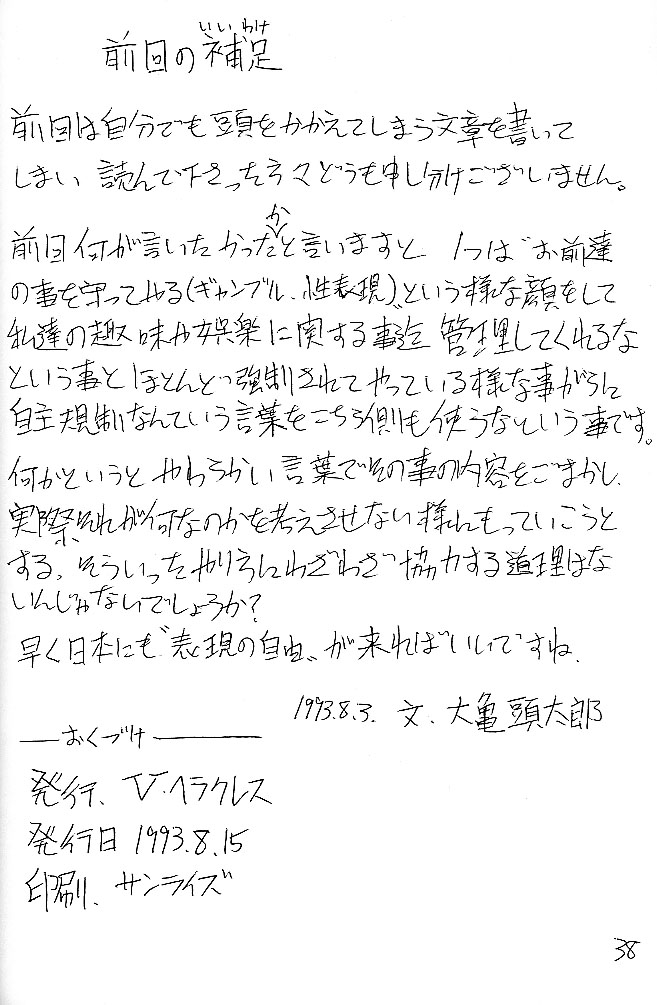 いいわけ
前回の補足
前回は自分でも頭をかかえてしまう文章を書いて
しまい 読んで下さった方々どうも申し分けございません。
か
前回何が言いたかったと言いますと、1つは〝お前達
の事を守ってやる(ギャンブル、性表現)〟という様な顔をして
私達の趣味や娯楽に関する事迄 管理してくれるな
という事と ほとんど強制されてやっている様な事がらに
自主規制なんていう言葉をこちら側も使うなという事です。
何かというと やわらかい言葉でその事の内容をごまかし、
実際それが何なのかを考えさせない様にもっていこうと
する。そういったやり方にわざわざ協力する道理はな
いんじゃないでしょうか?
早く日本にも〝表現の自由〟が来ればいいですね。
1993.8.3. 文、大亀頭太郎
──おくづけ────
発行、V・ヘラクレス
発行日 1993.8.15
印刷、サンライズ
38